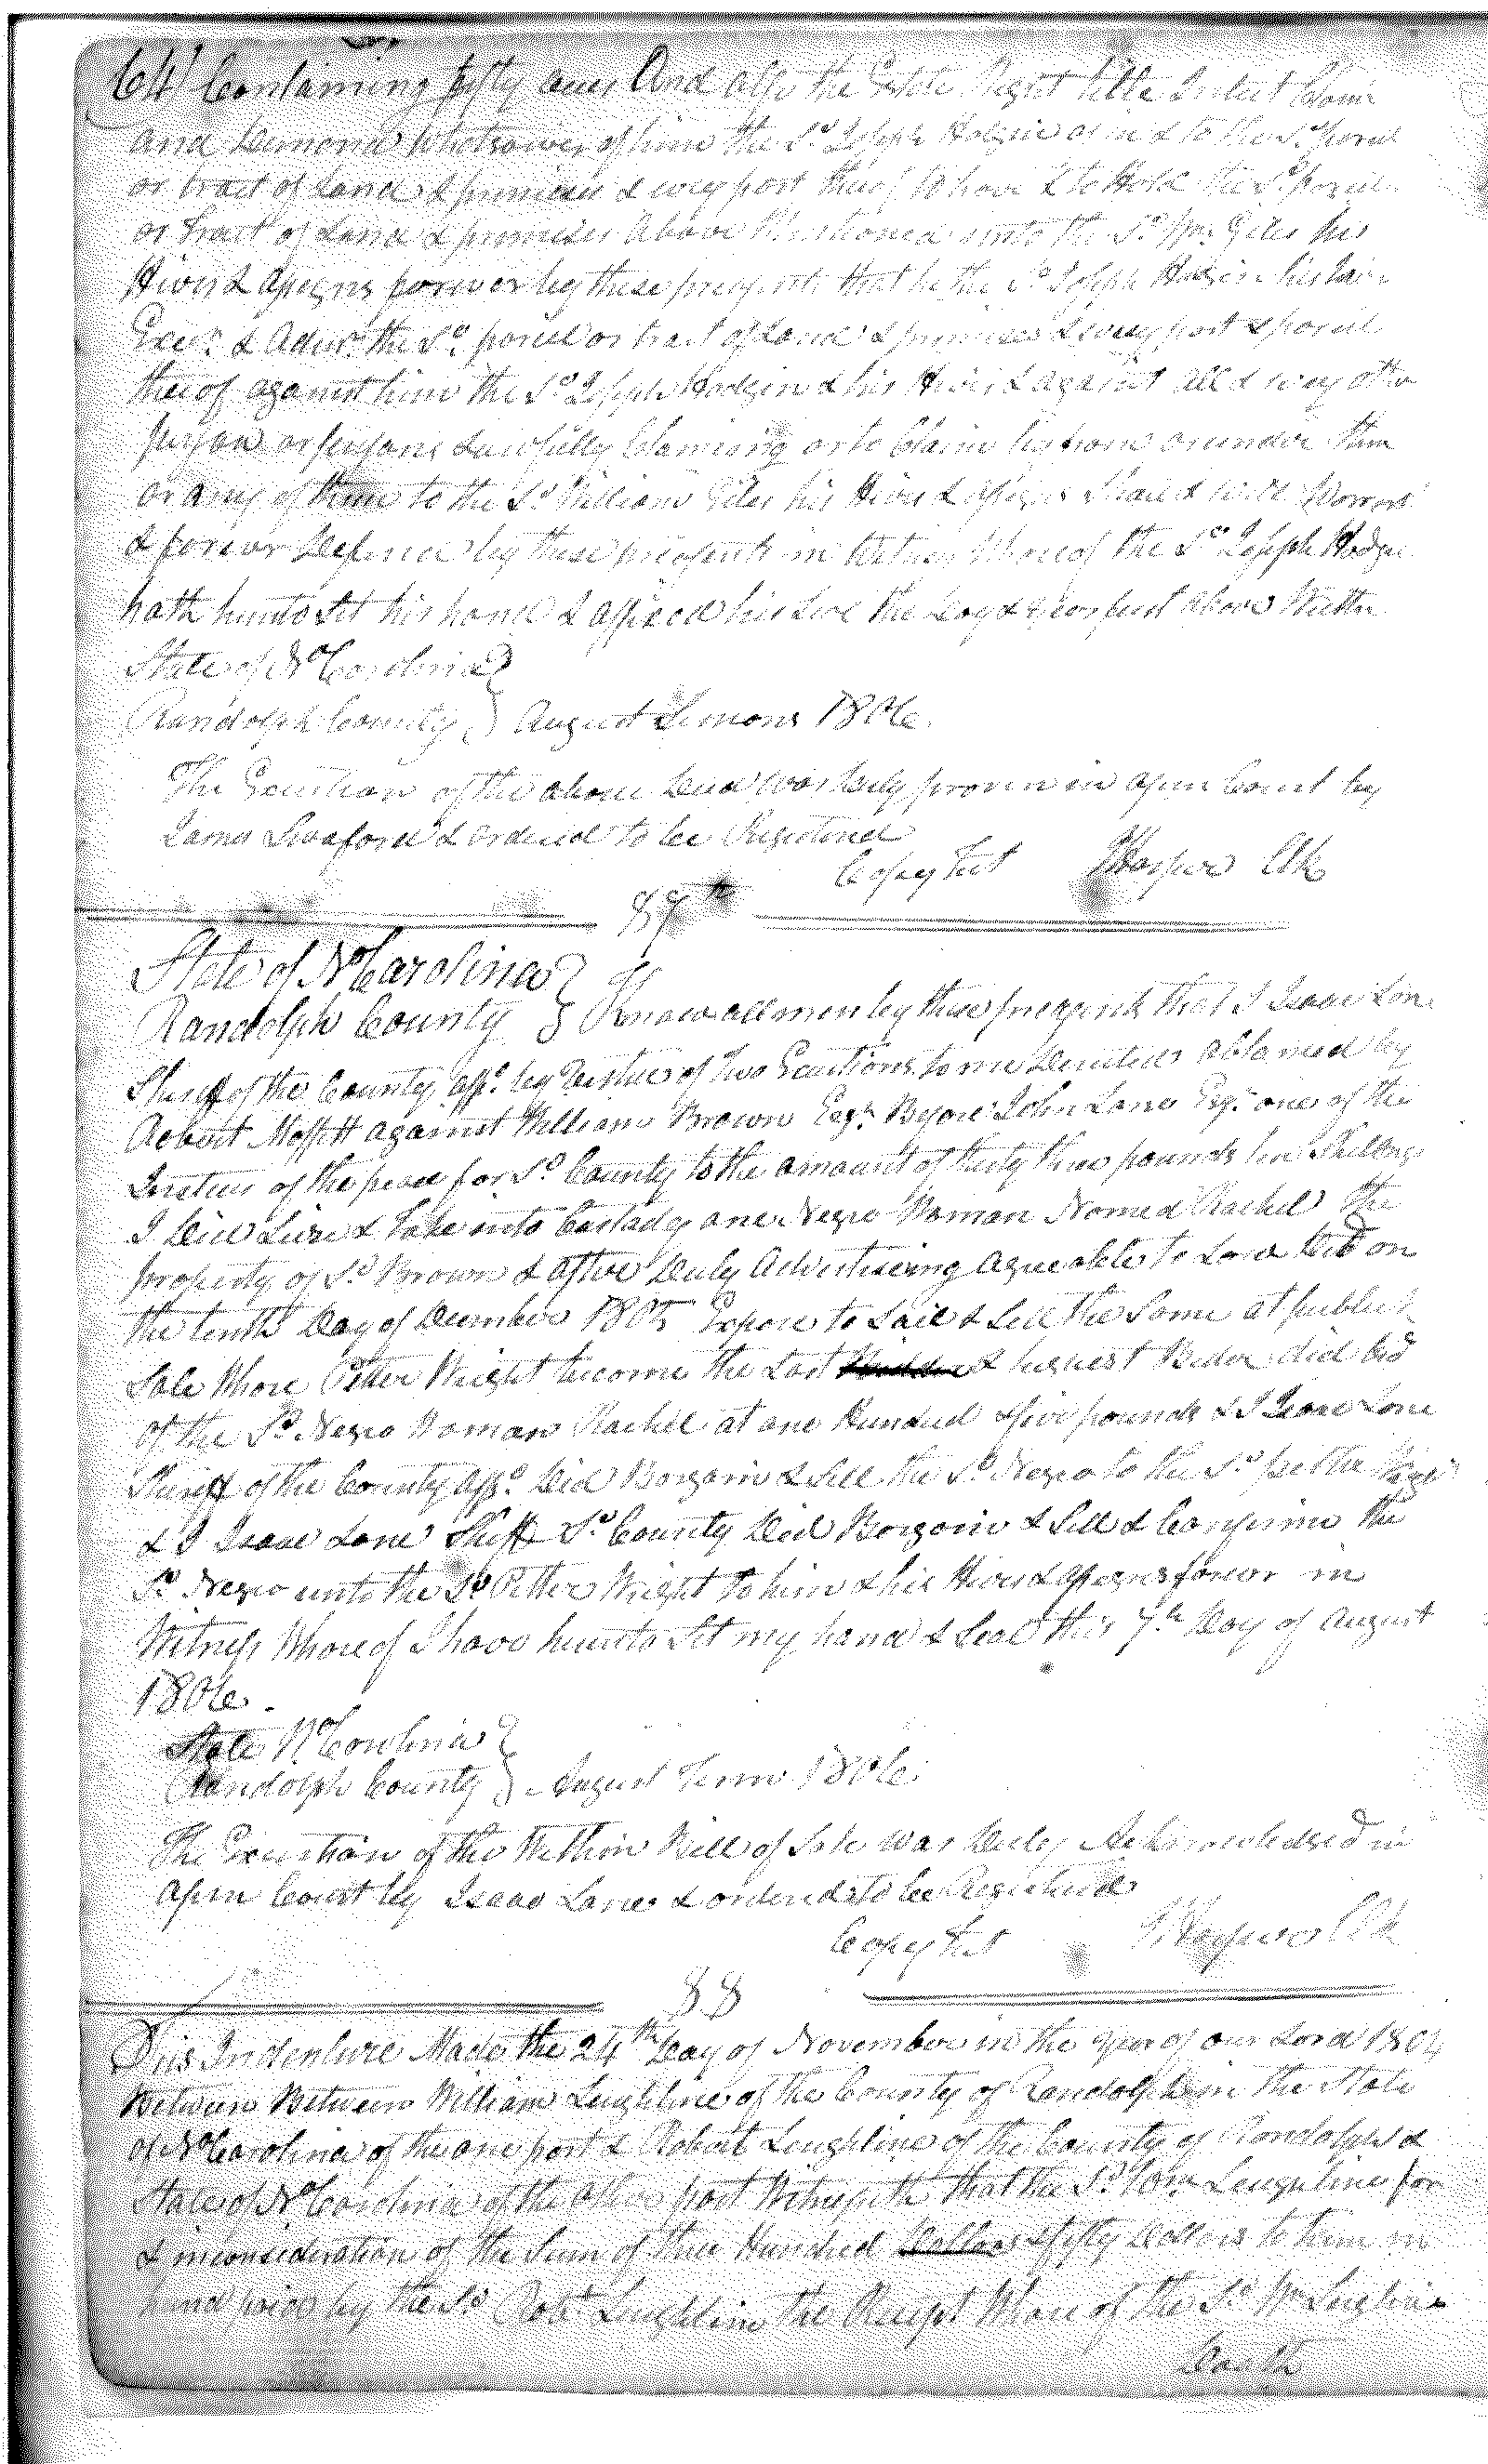 64 Containing fifty acres And also the Estate Right title Intrest Claim
and Demand Whatsower of him the Sd Joseph Hodgin of in & to the Sd porcel
or tract of Land & primises & evry port thereof to have & to Hold the Sd porcel
or tract of Land & primises Above Mentioned unto the Sd Wm Giles his
Hiers & Assigns forever by these presents that he the Sd Joseph Hodgin his hairs
Excrs & Admrs the Sd porcel or tract of Land & primises & every port & porcel
thereof against him the Sd Joseph Hodgin & his Hiers & against all & evry other
person or persons Lawfully Claiming or to Claim by from or under them
or any of them to the Sd William Giles his Hiers & assigns Shall & will Worront
& forever Defend by these presents in Witness Whereof the Sd Joseph Hodgin
hath hereunto Set his hand & affixed his Seal the Day & Year furst above Written
State of No Carolina
Randolph County } August Term 1806
The Execution of the above Deed was Duly proven in open Court by
James Swaford & ordered to be Registered
Copey Test Harper Clk
87th
State of No Carolina
Randolph County } Know all men by these presents that I Isaac Lane
Shireff of the County Affd by Virtue of two Executions to me Derected obtained by
Robert Moffitt against William Brown Esqr Before John Lane Esqr one of the
Justices of the peace for Sd County to the amount of therty three pounds Shillings
I Did Sieze & take into Custady one Negro Woman Nomed Rachel the
property of Sd Brown & after Duly Advertiseing agreeable to Law Did on
the tenth Day of December 1805 Expose to Sail & Sell the Same at publick
Sale Whare Petter Wright become the Last & highest Bider did bid
of the Sd Negro Woman Rachel at one Hundred & five pounds & I Isaac Lane
Shireff of the County Affd Did Borgain & Sell the Sd Negro to the Sd petter Wright
& I Isaac Lane Shiff Sd County Did Borgain & Sell & Conferm the
Sd Negro unto the Sd Petter Wright to him & his Hiers & assigns forever in
Witness Whereof I have hereunto Set my hand & Seal this 7th Day of August
1806
State No Carolina
Randolph County } August Term 1806
The Execution of the Within Bill of Sale was Duly Acknowledged in
open Court by Isaac Lane & ordered to be Registered
Copey Test Harper Clk
88
This Indenture Made the 24th Day of November in the Year of our Lord 1804
Between Between William Laughline of the County of Randolph in the State
of No Carolina of the one port & Robert Loughline of the County of Randolph &
State of No Carolina of the other port Witnesseth that the Sd Wm Loughline for
& inconsideration of the Sum of three Hundred Dollars & fifty Dollors to him in
hand by the Sd Robt Loughline the Receipt Whareof the Sd Wm Loughline
Doath